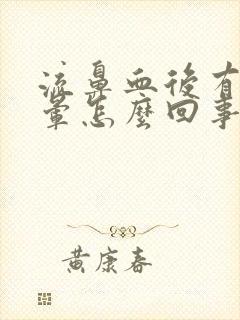 流鼻血後有
暈怎麼回事
黃康春